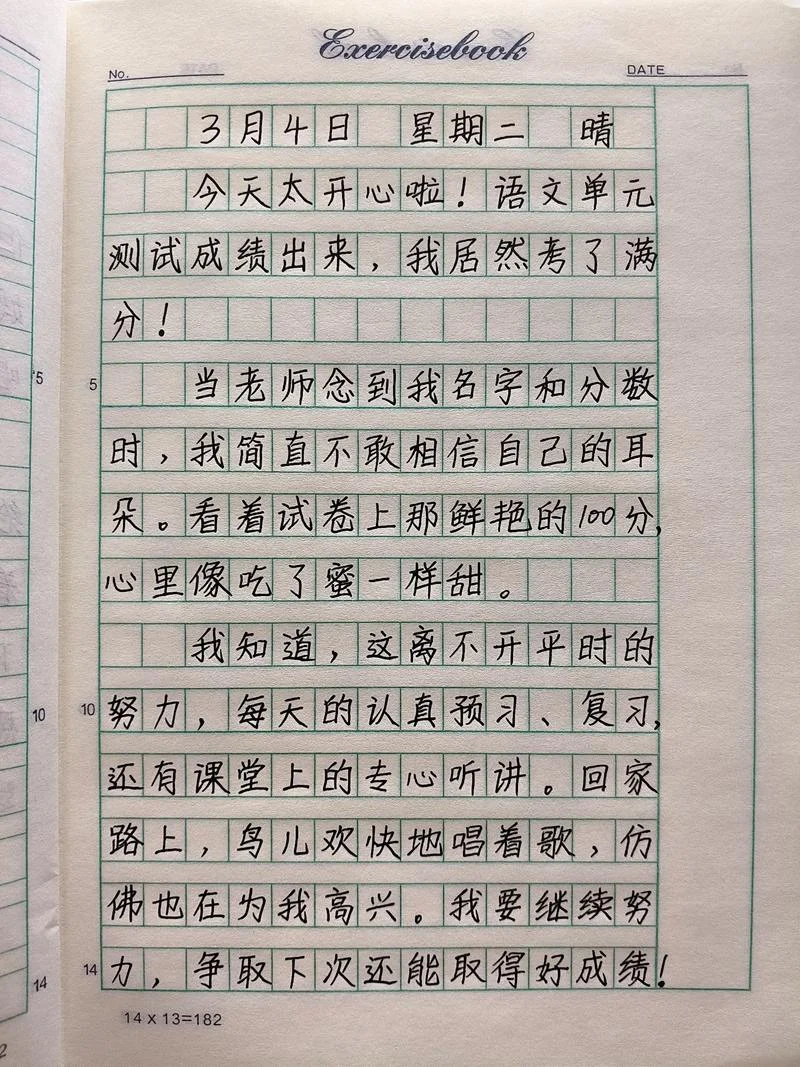 Exercisebook
No. DATE
3月4日 星期二 晴
今天太开心啦！语文单元
测试成绩出来，我居然考了满
分！
5 当老师念到我名字和分数
时，我简直不敢相信自己的耳
朵。看着试卷上那鲜艳的100分，
心里像吃了蜜一样甜。
我知道，这离不开平时的
10 努力，每天的认真预习、复习，
还有课堂上的专心听讲。回家
路上，鸟儿欢快地唱着歌，仿
佛也在为我高兴。我要继续努
14 力，争取下次还能取得好成绩！
14 x 13=182
5
10
14